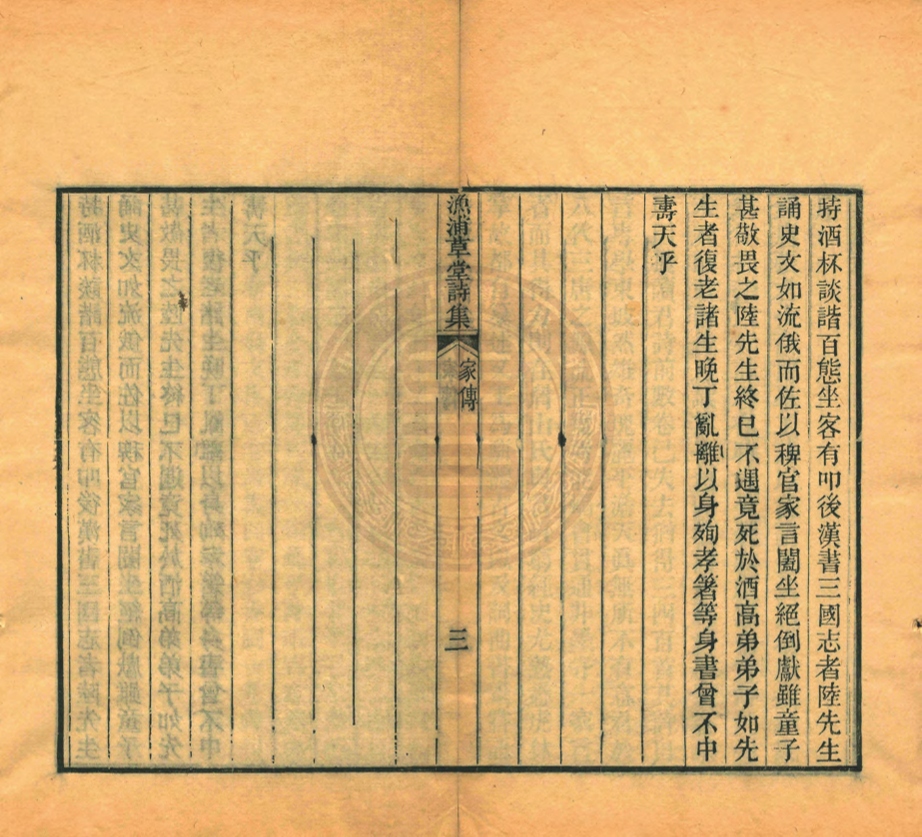 持酒杯談諧百態坐客有叩後漢書三國志者陸先生
誦史文如流俄而佐以稗官家言闔坐絕倒獻雖童子
甚敬畏之陸先生終已不遇竟死於酒高弟弟子如先
生者復老諸生晚丁亂離以身殉孝箸等身書曾不中
壽天乎
漁浦草堂詩集
家傳
三